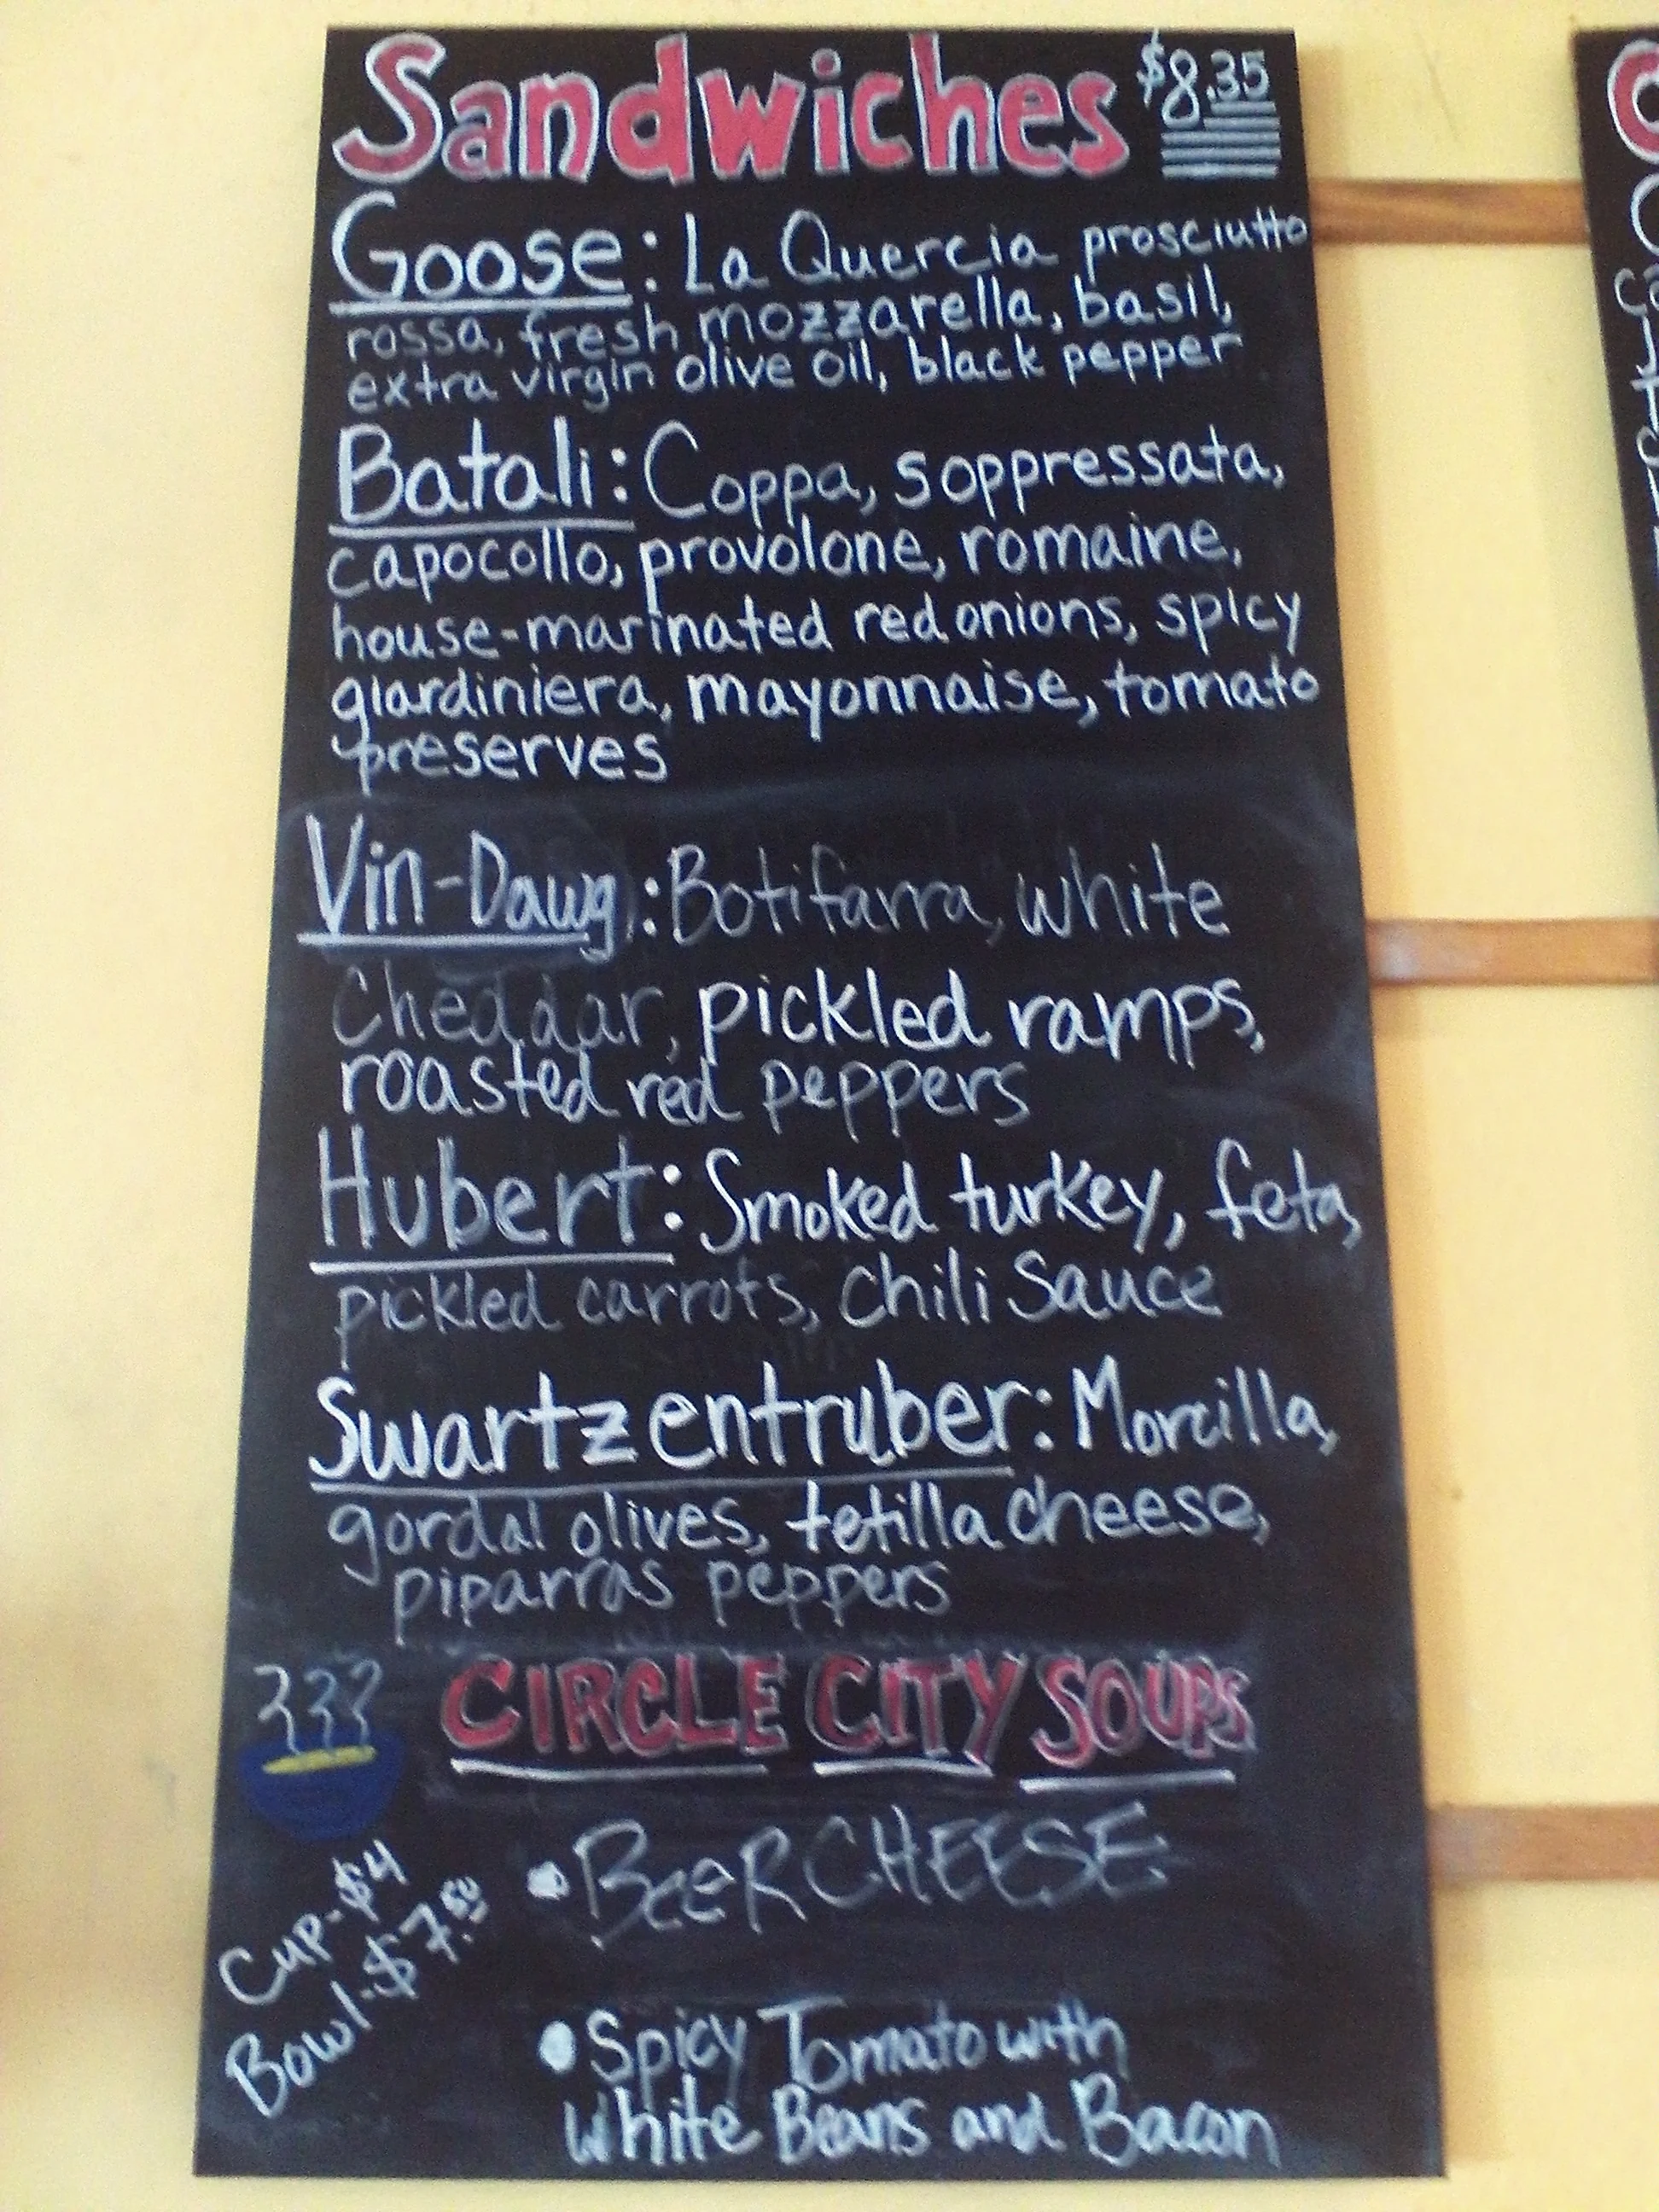 Sandwiches $8.35
Goose: La Quercia prosciutto
rossa, fresh mozzarella, basil,
extra virgin olive oil, black pepper
Batali: Coppa, soppressata,
capocollo, provolone, romaine,
house-marinated red onions, spicy
giardiniera, mayonnaise, tomato
preserves
Vin-Dawg: Botifarra, white
Cheddar, pickled ramps,
roasted red peppers
Hubert: Smoked turkey, feta,
pickled carrots, Chili Sauce
Swartzentruber: Morcilla,
gordal olives, tetilla cheese,
piparras peppers
CIRCLE CITY SOUPS
Cup-$4
Bowl-$7.50
• BEER CHEESE
• Spicy Tomato with
White Beans and Bacon